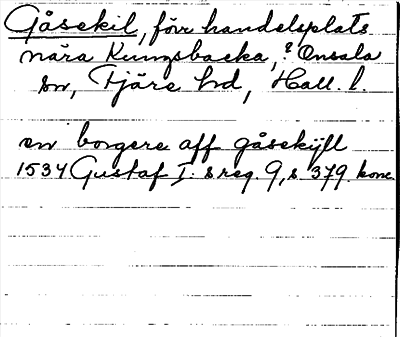 Gåsekil, förr handelsplats
nära Kungsbacka, ? Onsala
sn, Fjäre hd, Hall. l.
en borgere aff gåsekijll
1534 Gustaf I:s reg. 9, s. 379. konc